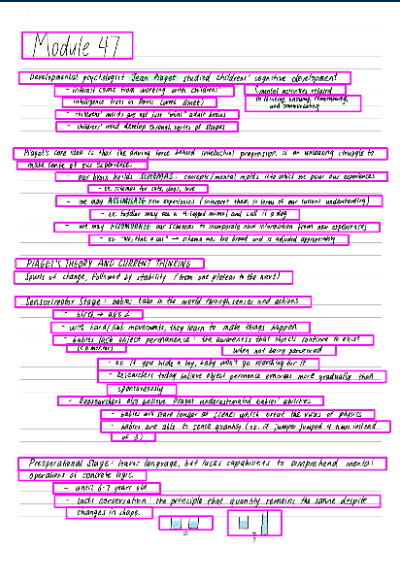 Module 47
Developmental psychologist Jean Piaget studied childrens' cognitive development
- interest came from working with childrens'
(mental activities related
intelligence tests in Paris (with Binet)
to thinking, knowing, remembering,
and communicating
- childrens' minds are not just "mini" adult brains
- childrens' mind develop through series of stages
Piaget's core idea is that the driving force behind intellectual progression is an unceasing struggle to
make sense of our experience.
- our brain builds SCHEMAS: concepts/mental molds into which we pour our experiences
- ex. schemas for cats, dogs, love
- we may ASSIMILATE new experiences (interpret them in terms of our current understanding)
- ex. toddler may see a 4-legged animal and call it a dog
- we may ACCOMODATE our schemas to incorporate new information from new experiences
- ex. "No, that's a cat" → schema too broad and is adjusted appropriately
PIAGET'S THEORY AND CURRENT THINKING
Spurts of change, followed by stability (from one plateau to the next)
Sensorimotor Stage: babies take in the world through senses and actions
- birth → age 2
- with hand/limb movements, they learn to make things happen
- babies lack object permanence: the awareness that objects continue to exist
(<8 months)
when not being perceived
- ex. if you hide a toy, baby won't go searching for it
- researchers today believe object permanence emerges more gradually than
spontaneously
- Researchers also believe Piaget underestimated babies' abilities
- babies will stare longer at scenes which break the rules of physics
- babies are able to sense quantity (ex. if jumper jumped 4 times instead
of 3)
Preoperational Stage: learns language, but lacks capabilities to comprehend mental
operations of concrete logic
- until 6-7 years old
- lacks conservation: the principle that quantity remains the same despite
changes in shape.